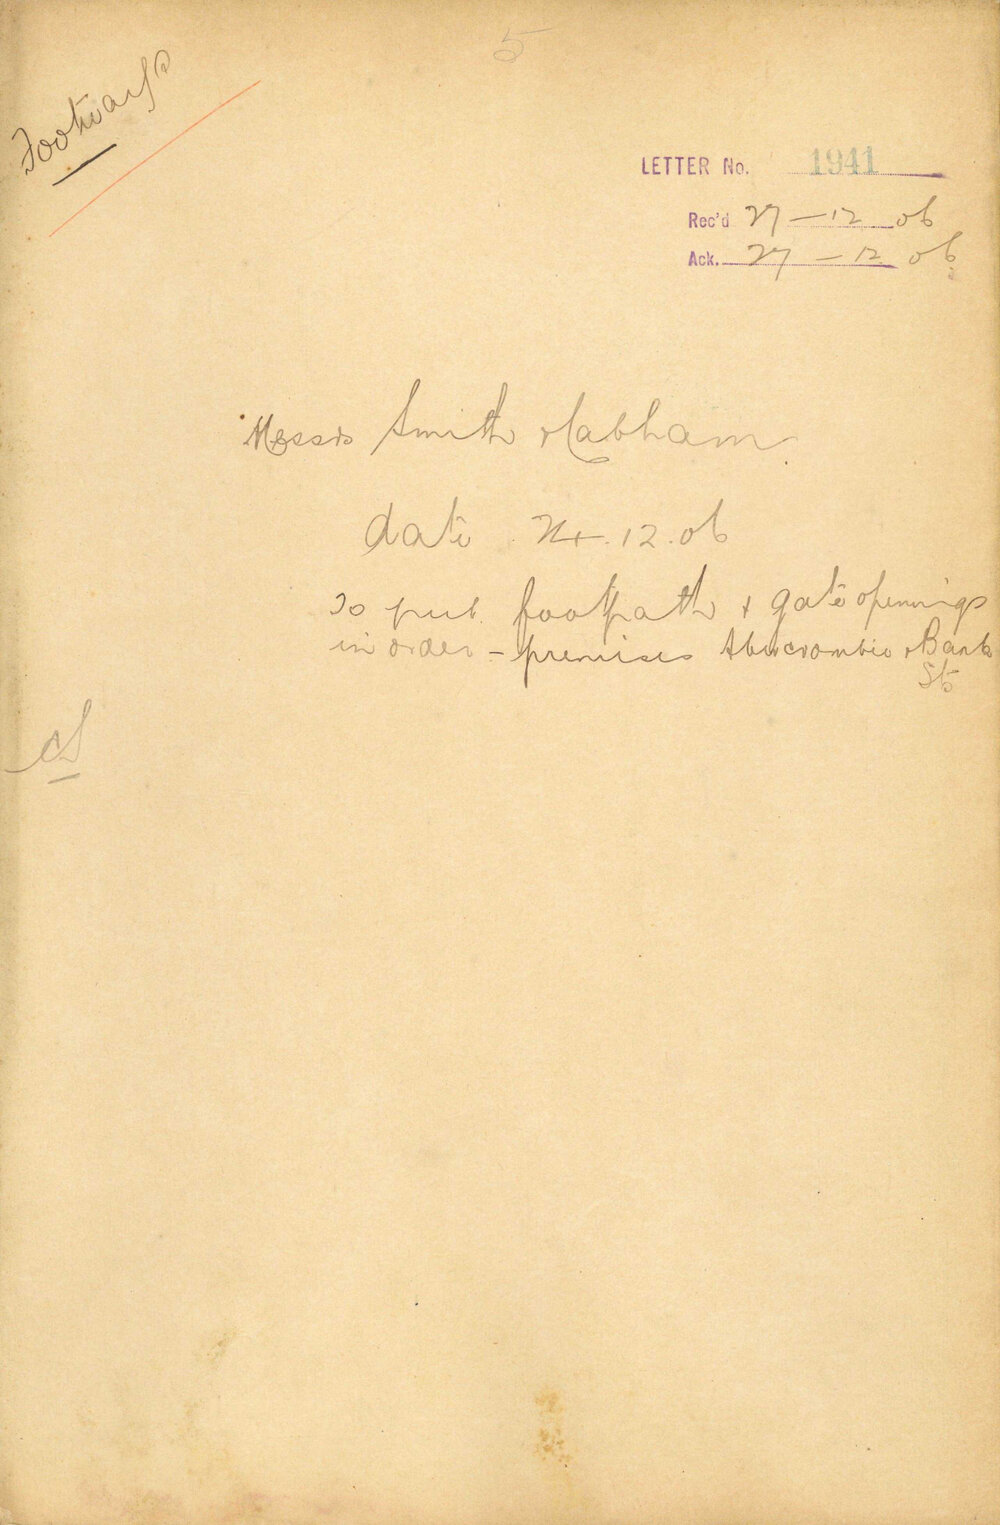 5
Footways
LETTER No. 1941
Rec'd 27-12 06
Ack. 27-12 06
Messrs Smith
date 24.12.06
To put footpath & gate openings
in order - premises Abercrombie & Bank
Sts